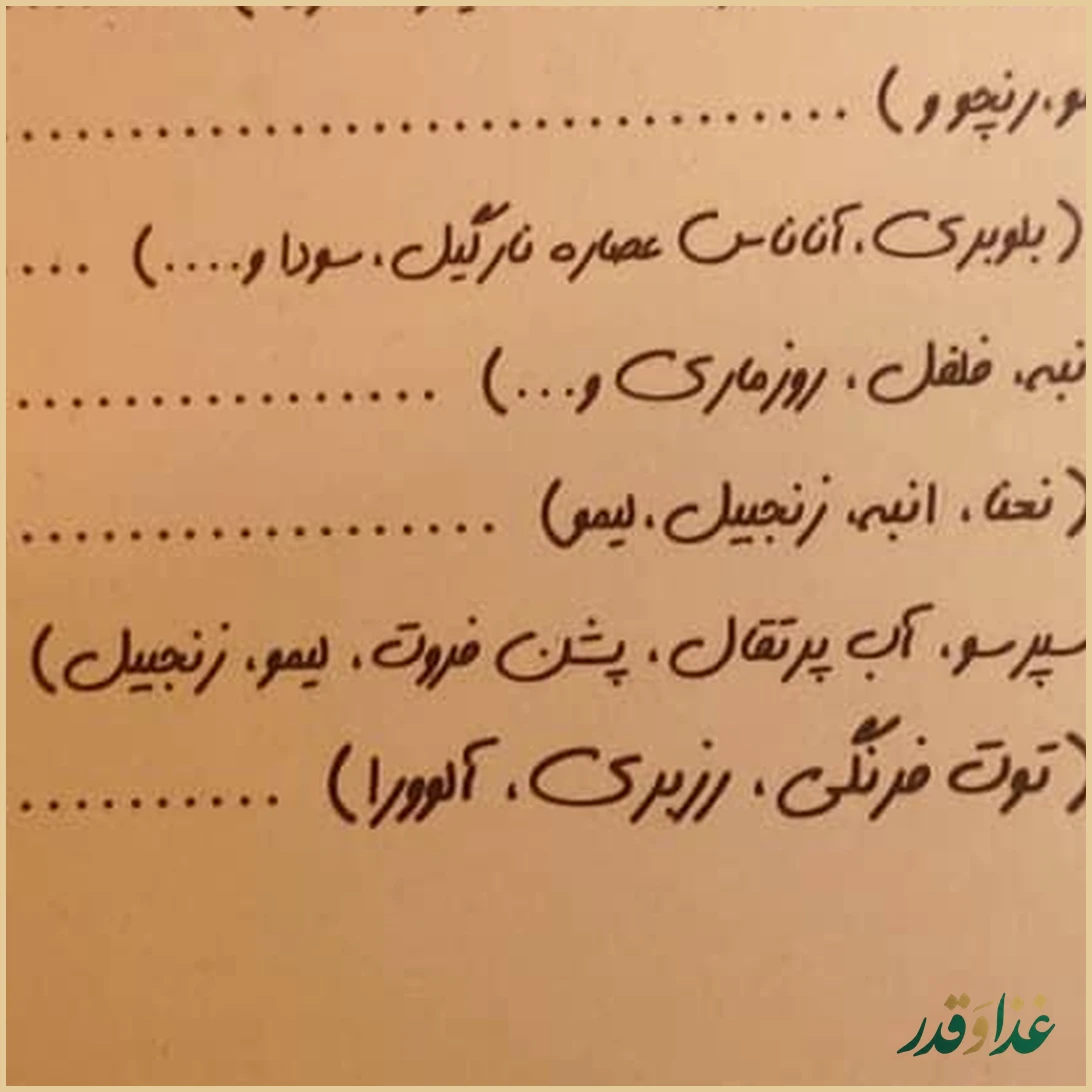 رنچو و )
( بلوبری، آناناس عصاره نارگیل، سودا و....) ...
فلفل، روزماری و...)
( نعنا، انبه، زنجبیل، لیمو)
آب پرتقال، پشن فروت، لیمو، زنجبیل)
( توت فرنگی، رزبری، آلوورا)
غذا و قدر